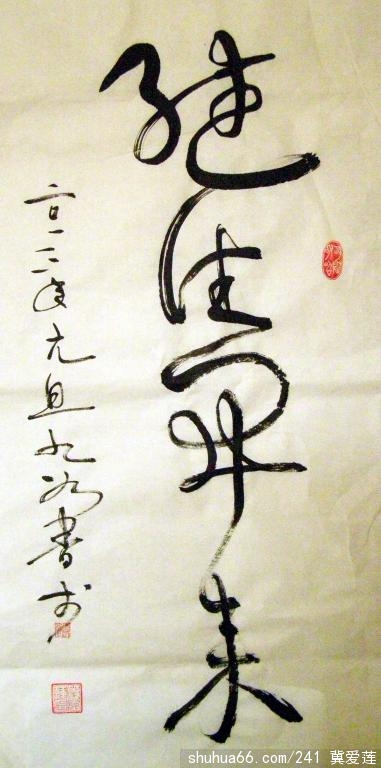 继往开来
二〇一二年元旦
书于
shuhua66.com/241 冀爱莲